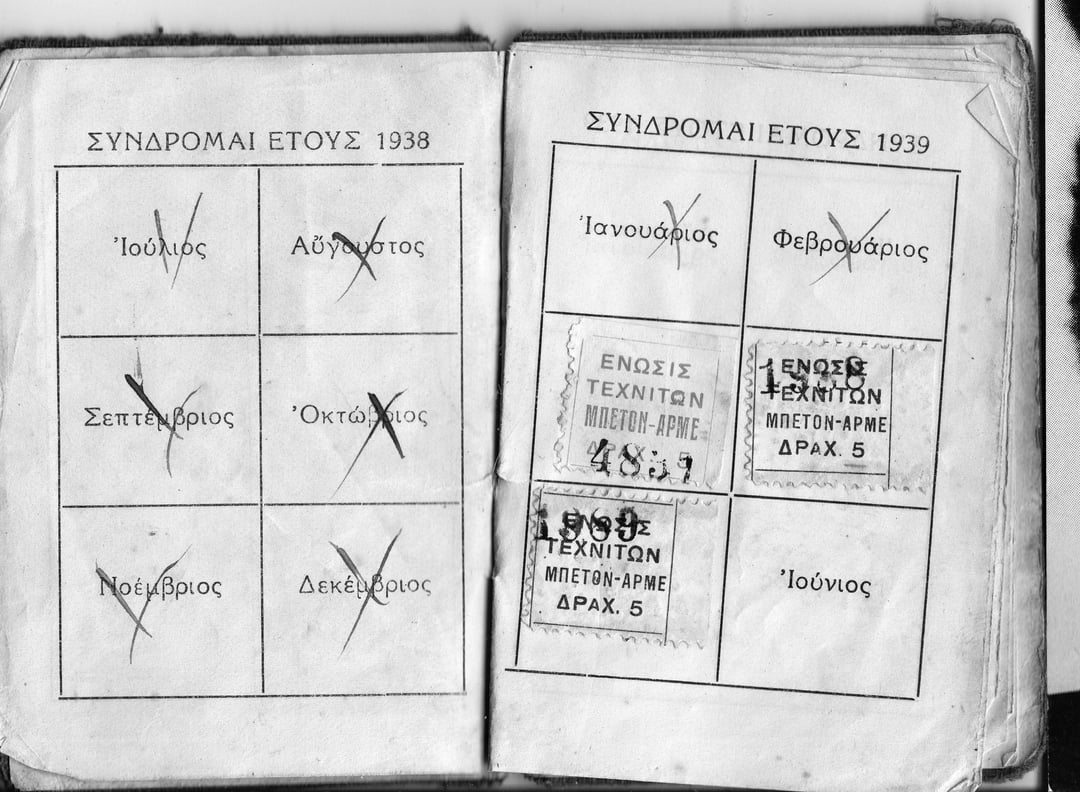 ΣΥΝΔΡΟΜΑΙ ΕΤΟΥΣ 1938
Ἰούλιος
Αὔγουστος
Σεπτέμβριος
Ὀκτώβριος
Νοέμβριος
Δεκέμβριος
ΣΥΝΔΡΟΜΑΙ ΕΤΟΥΣ 1939
Ἰανουάριος
Φεβρουάριος
ΕΝΩΣΙΣ
ΤΕΧΝΙΤΩΝ
ΜΠΕΤΟΝ-ΑΡΜΕ
ΔΡΑΧ. 5
ΕΝΩΣΙΣ
ΤΕΧΝΙΤΩΝ
ΜΠΕΤΟΝ-ΑΡΜΕ
ΔΡΑΧ. 5
ΕΝΩΣΙΣ
ΤΕΧΝΙΤΩΝ
ΜΠΕΤΟΝ-ΑΡΜΕ
ΔΡΑΧ. 5
Ἰούνιος